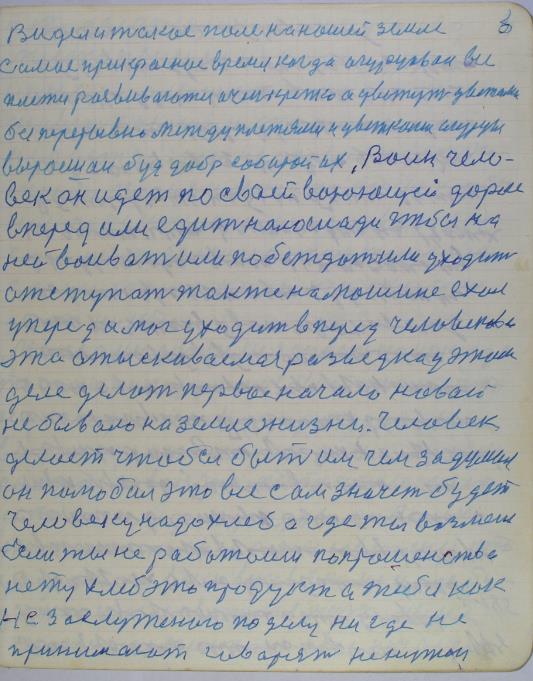 Виделитское поле на нашей земле 6
самое прикрасное время когда огурцован все
плети розвиваютси очен крепко а цветут цветами
бес перерывно между плетями и цветками огурци
вырошаи буд добр собирай их, Воин чело-
век он идет по своей воюющей дороге
вперед или едит на лосиади чтобы на
ней воиват или побеждат или уходит
отступат так же на машине ехал
уперед а мог уходит вперед человекова
эта отыскиваемая разведка у этом
деле делот первое начало новай
небывало на земле жизни. Человек
делоет чтобы быт им чем задумал
он полюбил это все сам значет будет
человеку надо хлеб а где ты возмеш
Если ты не работоиш попрошенства
нету хлеб это продукт а тебя как
не заслуженого по делу ни где не
принимают говарят ненужон